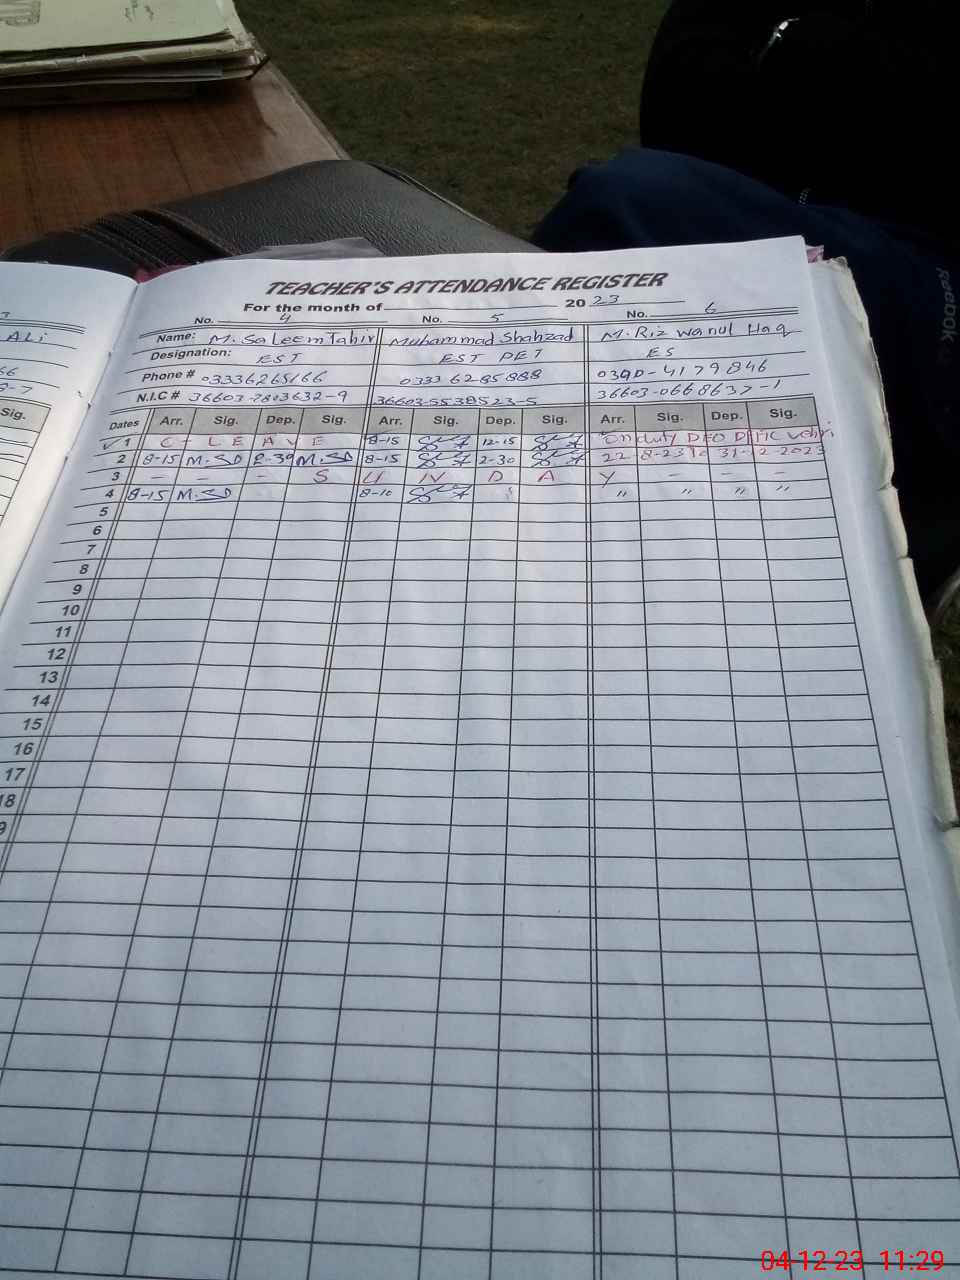 TEACHER'S ATTENDANCE REGISTER
For the month of 2023
ALi
No. 4 No. 5 No. 6
Name: M. Saleem Tahir Muhammad Shahzad M. Rizwanul Haq
Designation: EST EST PET ES
Phone # 03336265166 0333 6285888
N.I.C # 36603-7803632-9 36603-5538523-5 36603-0668637-1
Sig.
Dates Arr. Sig. Dep. Sig. Arr. Sig. Dep. Sig. Arr. Sig. Dep. Sig.
1 C-LEAVE 8-15 12-15 On duty DEO
2 8-15 M.SD 2-30 M.SD 8-15 2-30 22-8-23 to 31-12-2023
3 - - - S U N D A Y - - -
4 8-15 M.SD 8-10 " " " "
5
6
7
8
9
10
11
12
13
14
15
16
17
18
9
Reebok
04-12-23 11:29